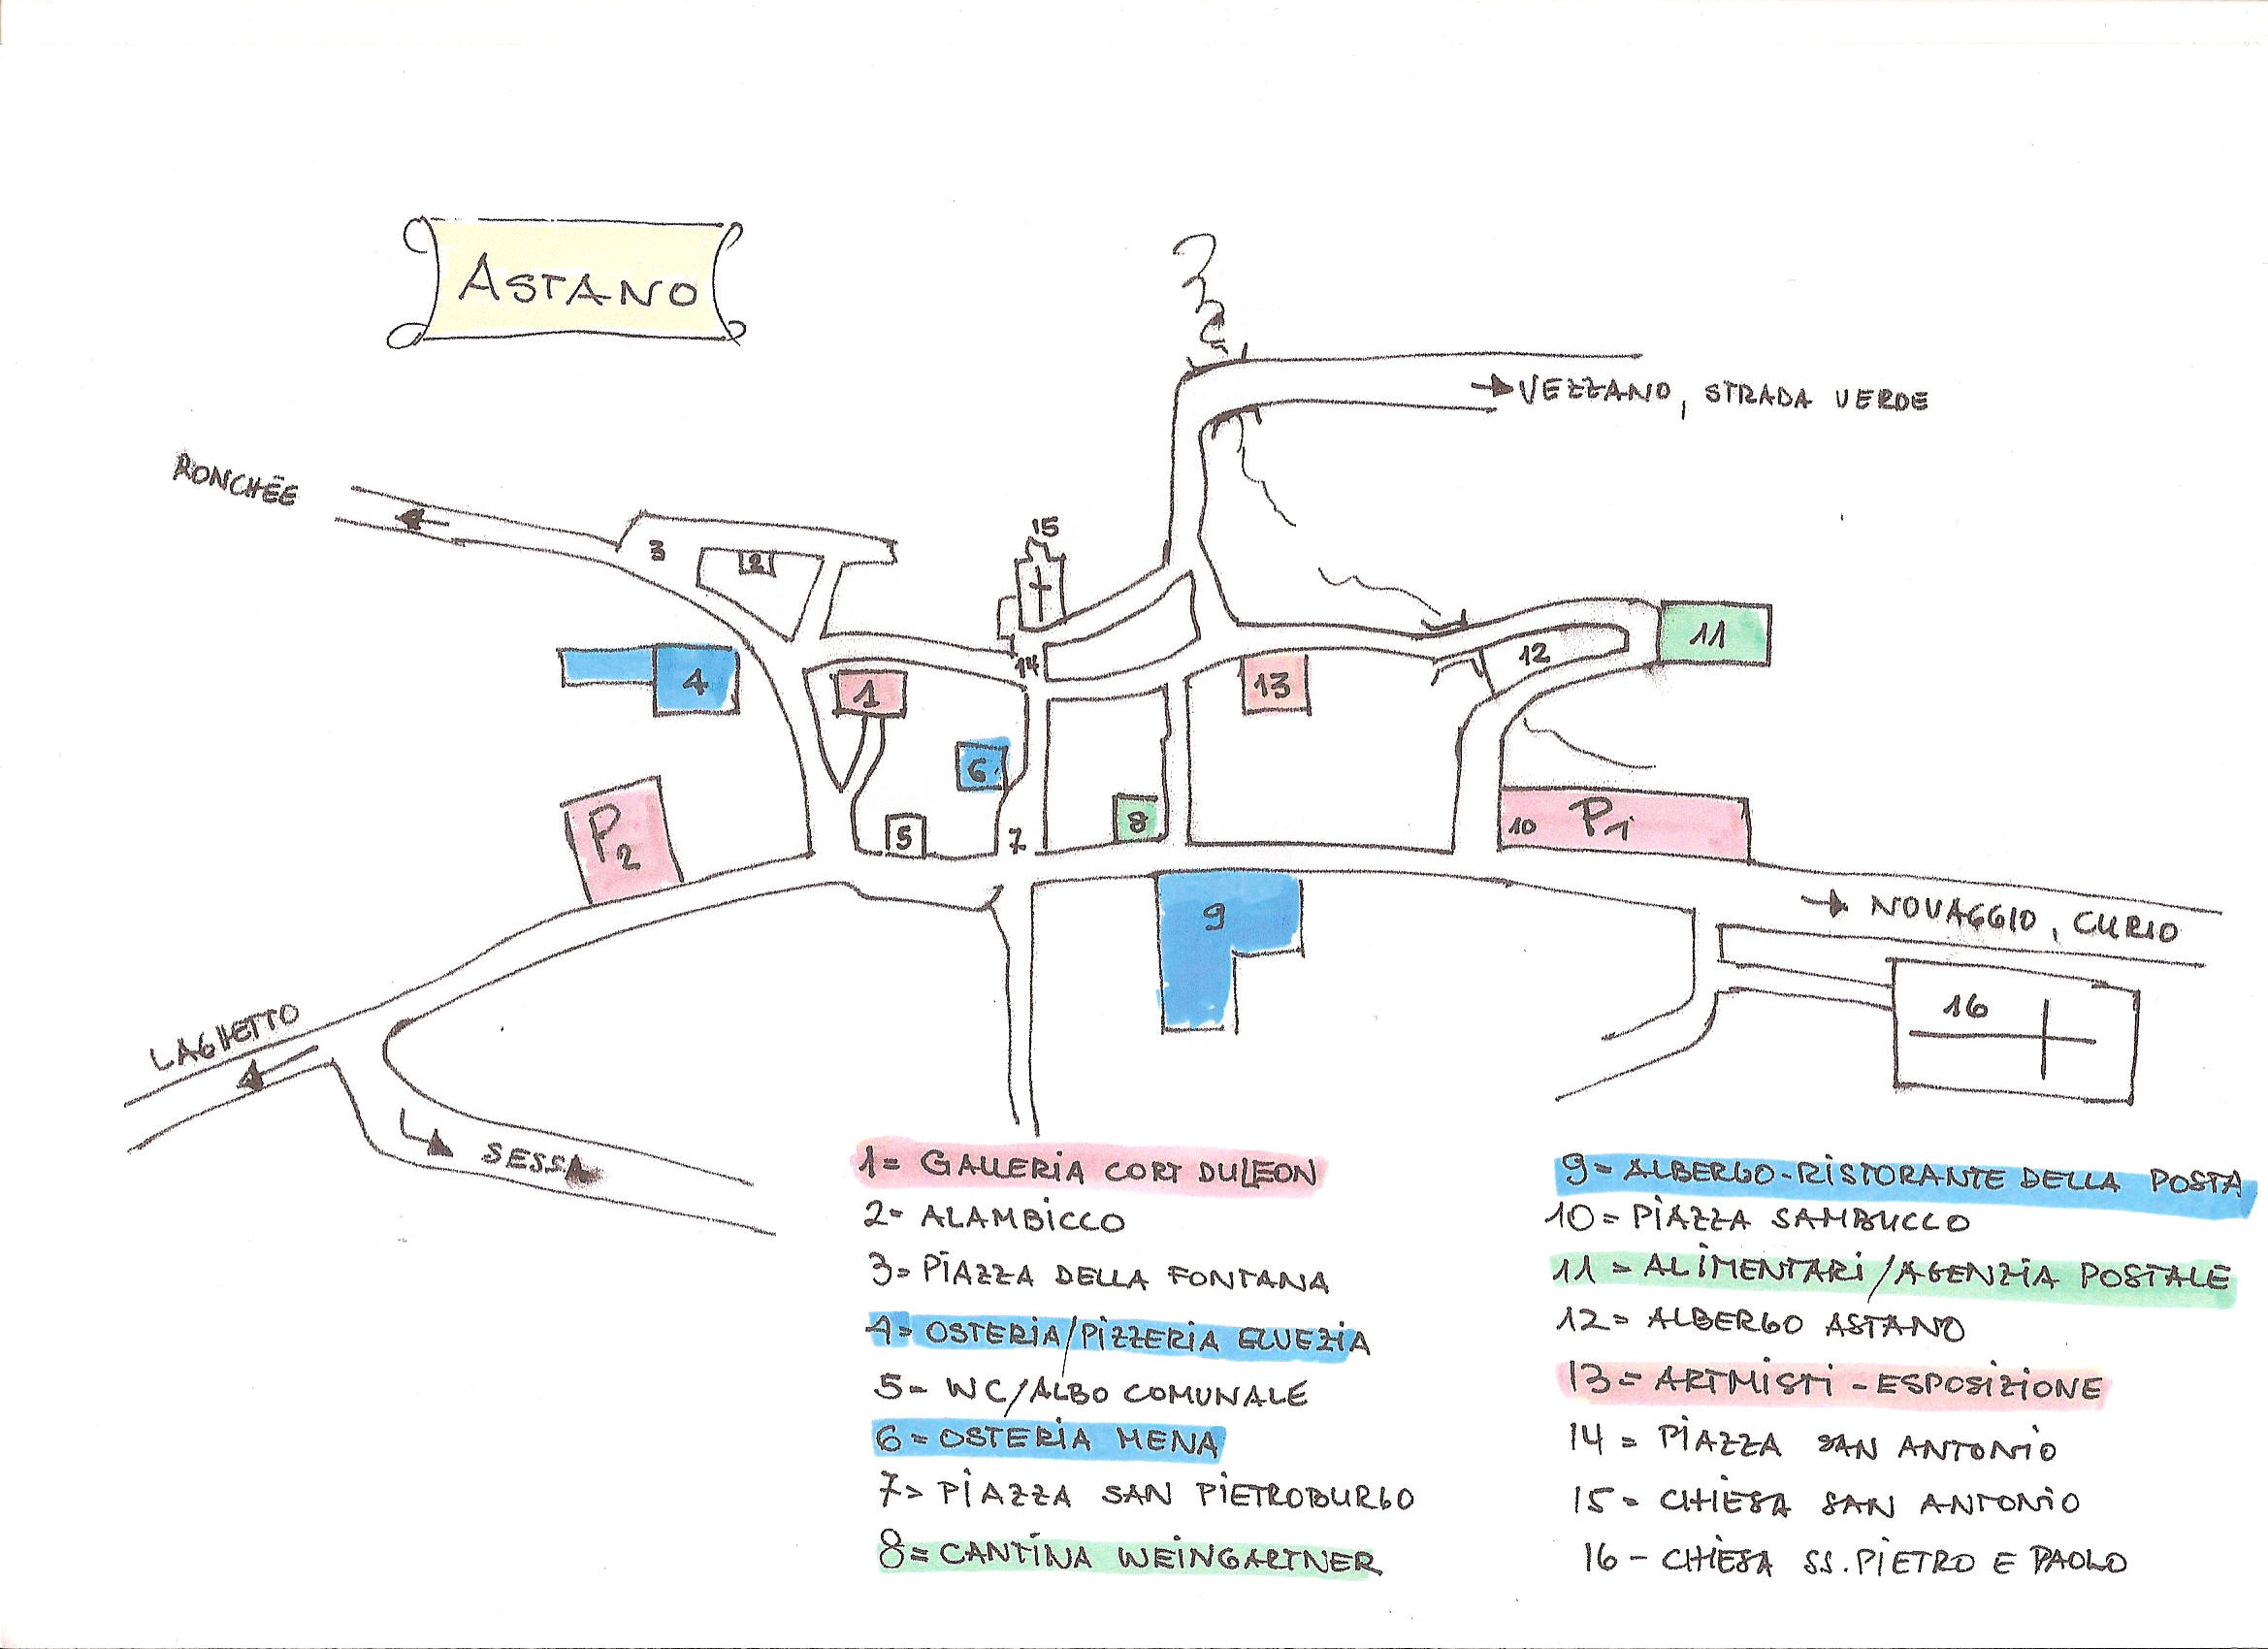 ASTANO
→ VEZZANO, STRADA VERDE
RONCHÉE
15
3
2
14
12
11
4
1
13
6
P2
5
7
8
10 P1
9
→ NOVAGGIO, CURIO
16
LAGHETTO
SESSA
1= GALLERIA CORT DULEON
2= ALAMBICCO
3= PIAZZA DELLA FONTANA
4= OSTERIA/PIZZERIA ELVEZIA
5- WC/ALBO COMUNALE
6= OSTERIA MENA
7= PIAZZA SAN PIETROBURGO
8= CANTINA WEINGARTNER
9= ALBERGO-RISTORANTE DELLA POSTA
10= PIAZZA SAMBUCCO
11= ALIMENTARI/AGENZIA POSTALE
12= ALBERGO ASTANO
13= ARTMISTI - ESPOSIZIONE
14= PIAZZA SAN ANTONIO
15= CHIESA SAN ANTONIO
16- CHIESA SS. PIETRO E PAOLO